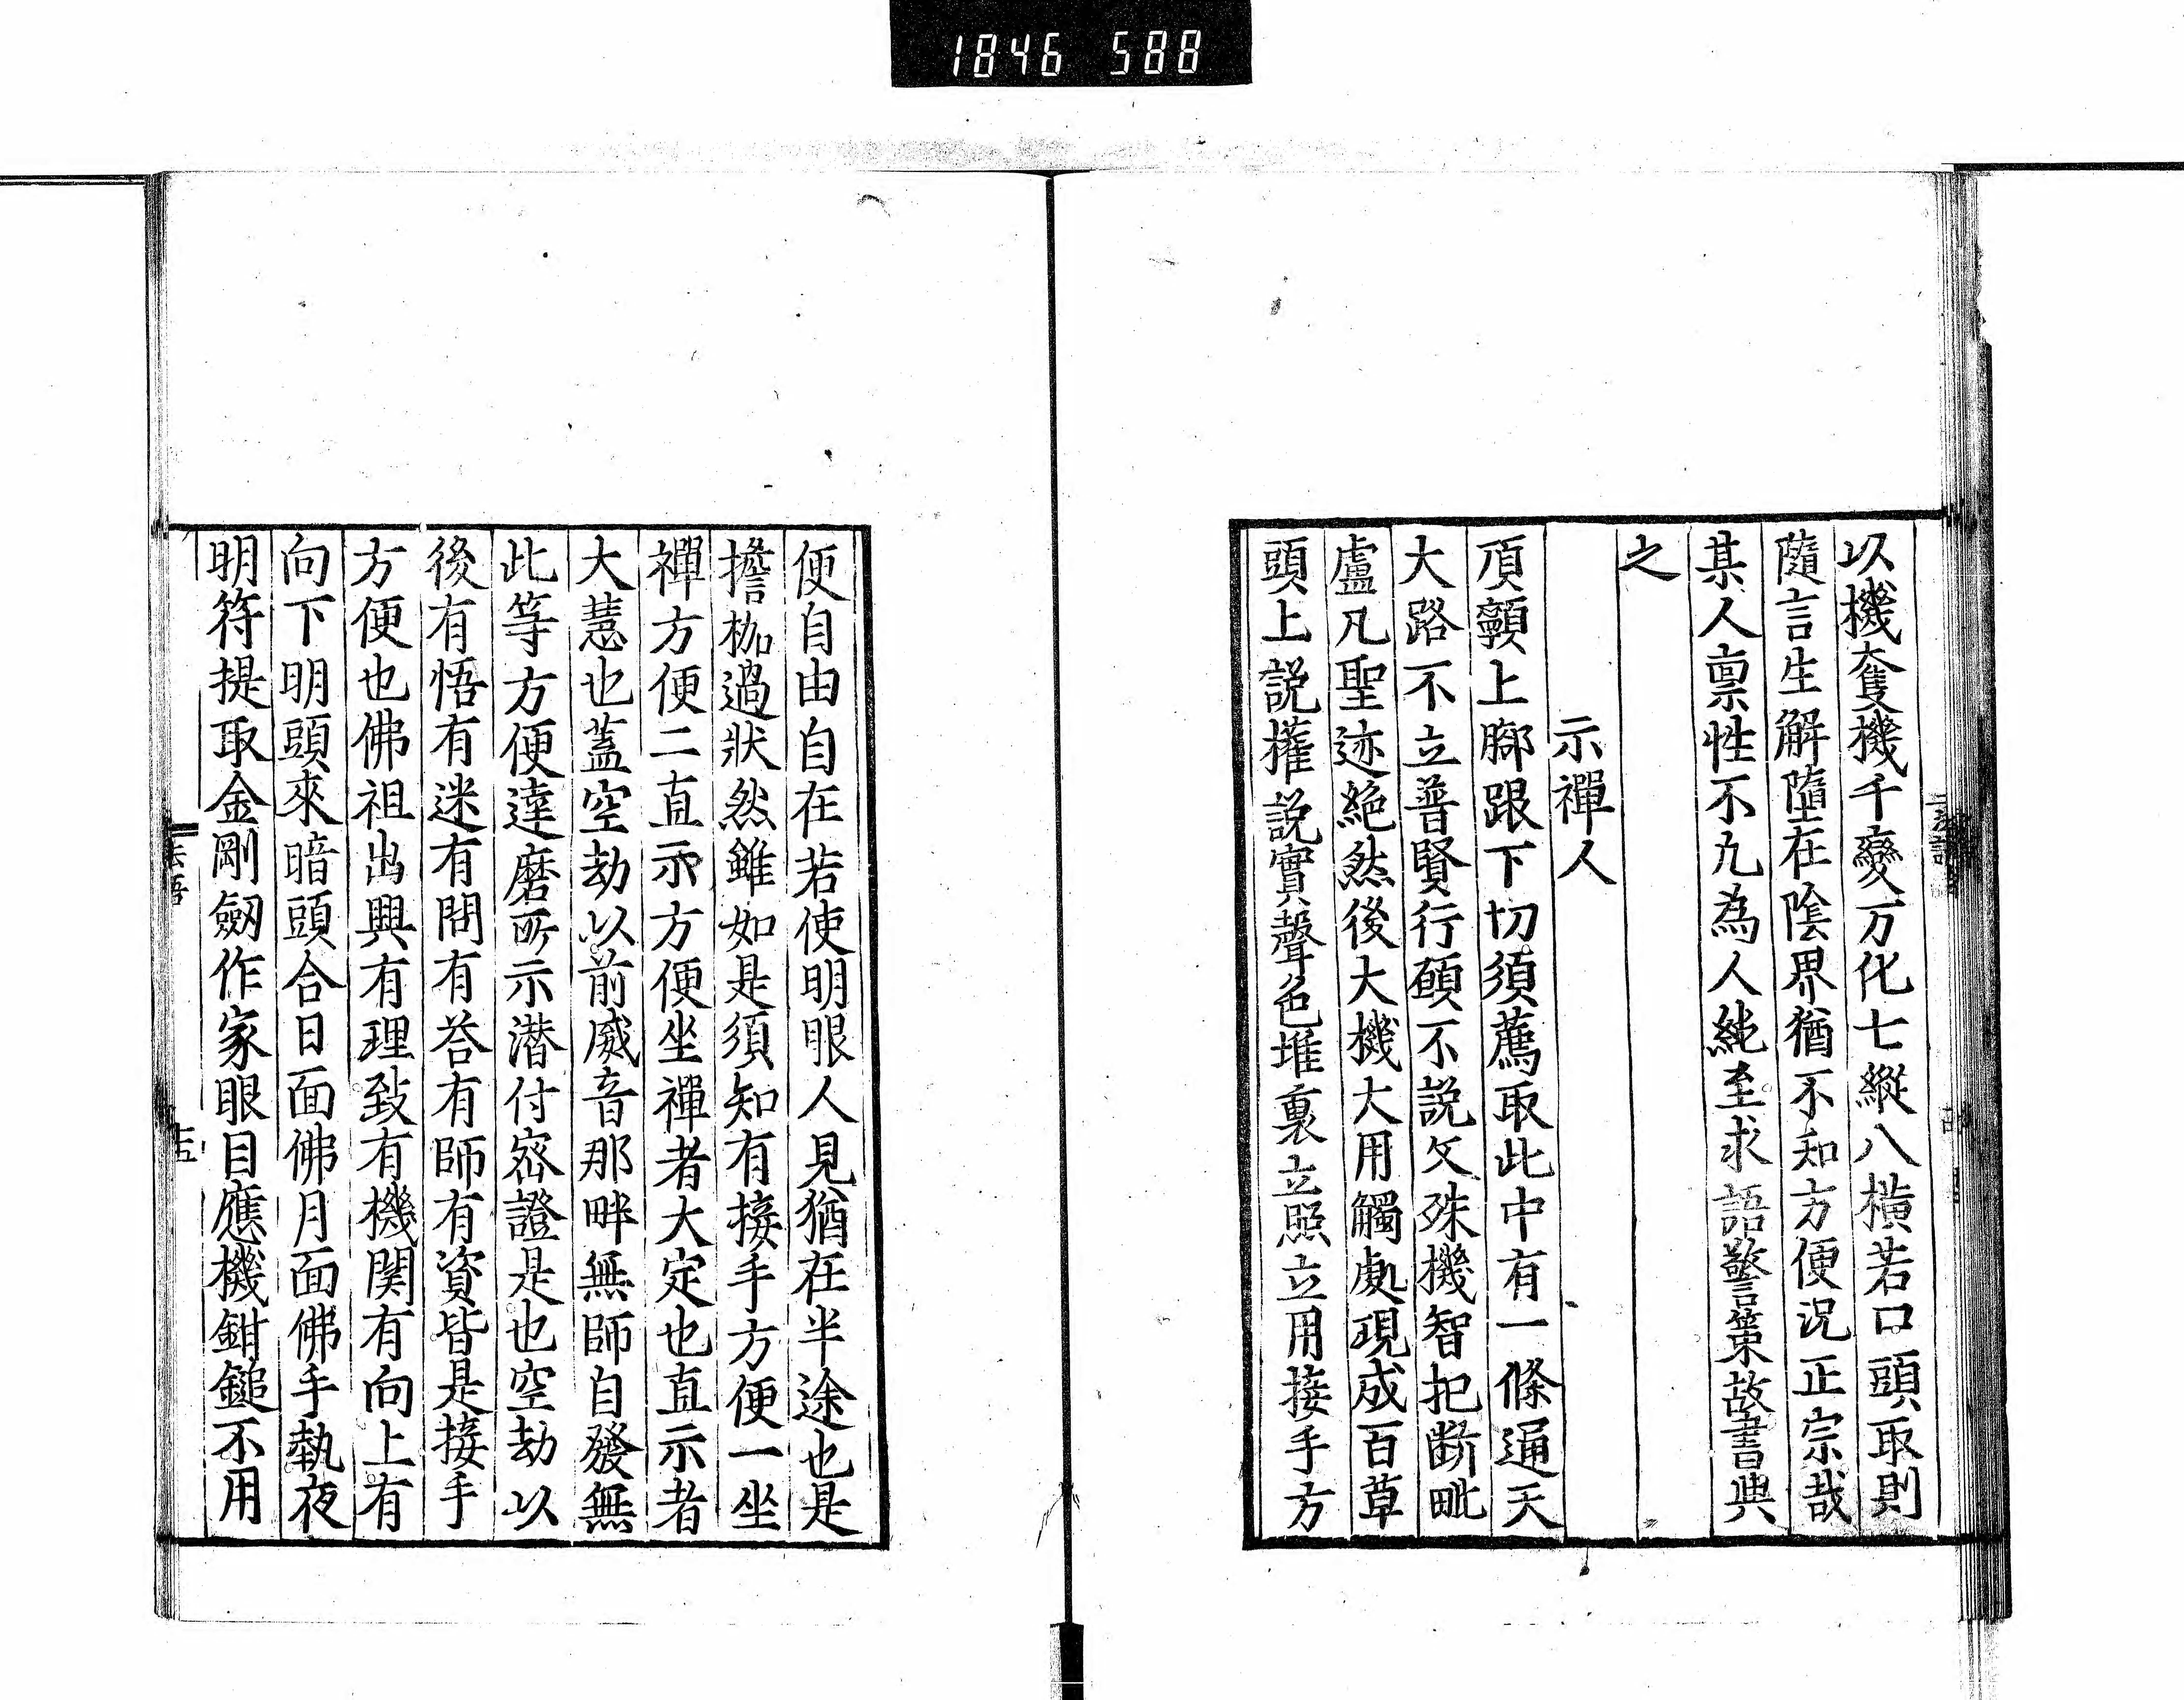 1846 588
以機奪機千變万化七縱八橫若口頭取則
隨言生解墮在陰界猶不知方便況正宗哉
某人稟性不凡為人純至求語警策故書與
之
示禪人
頂𩕳上腳跟下切須薦取此中有一條通天
大路不立普賢行願不說文殊機智把斷毗
盧凡聖迹絕然後大機大用觸處現成百草
頭上說權說實聲色堆裏立照立用接手方
便自由自在若使明眼人見猶在半途也是
擔枷過狀然雖如是須知有接手方便一坐
禪方便二直示方便坐禪者大定也直示者
大慧也蓋空劫以前威音那畔無師自發無
此等方便達磨所示潛付密證是也空劫以
後有悟有迷有問有答有師有資皆是接手
方便也佛祖出興有理致有機関有向上有
向下明頭來暗頭合日面佛月面佛手執夜
明符提取金剛劔作家眼目應機鉗鎚不用